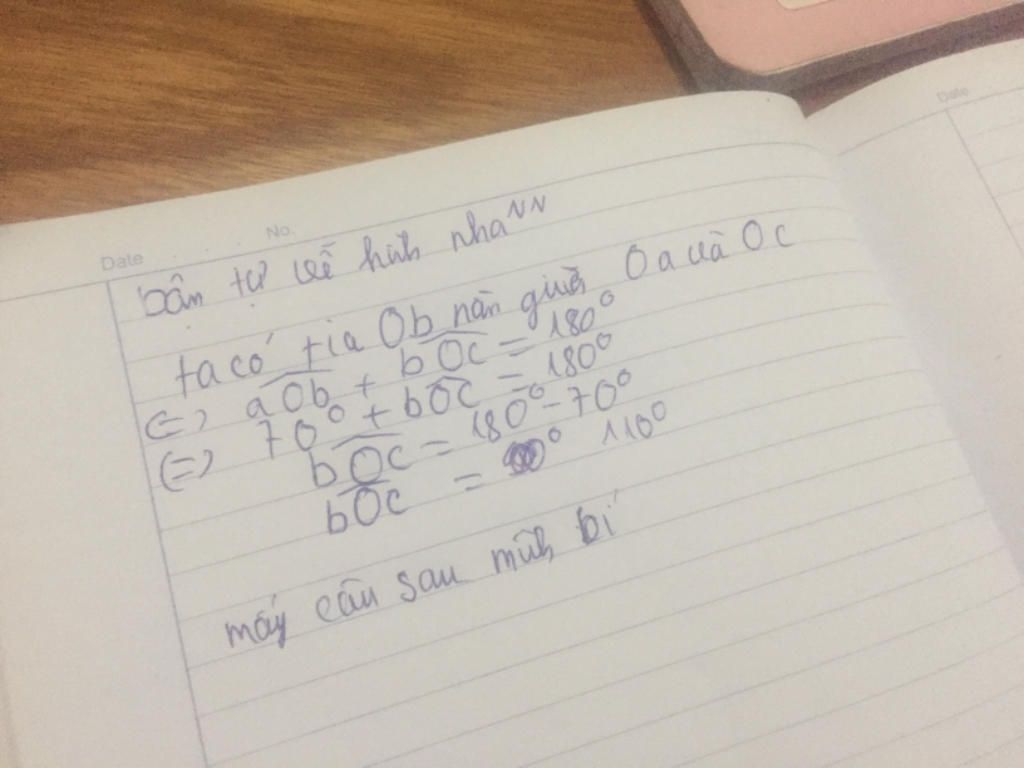 Date No.
Date
bạn tự vẽ hình nha^^
ta có tia Ob nằn giữa Oa và Oc
(=) aOb + bOc = 180°
(=) 70° + bOc = 180°
bOc = 180° - 70°
bOc = 110°
mấy câu sau mình bí